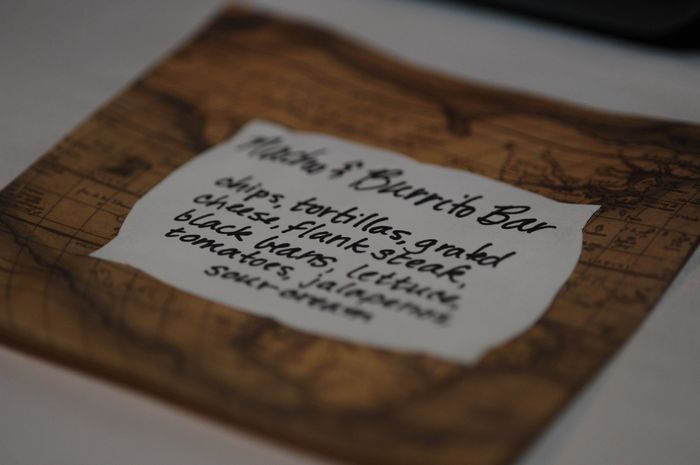 Nacho & Burrito Bar
chips, tortillas, grated
cheese, flank steak,
black beans, lettuce,
tomatoes, jalapenos
sour cream